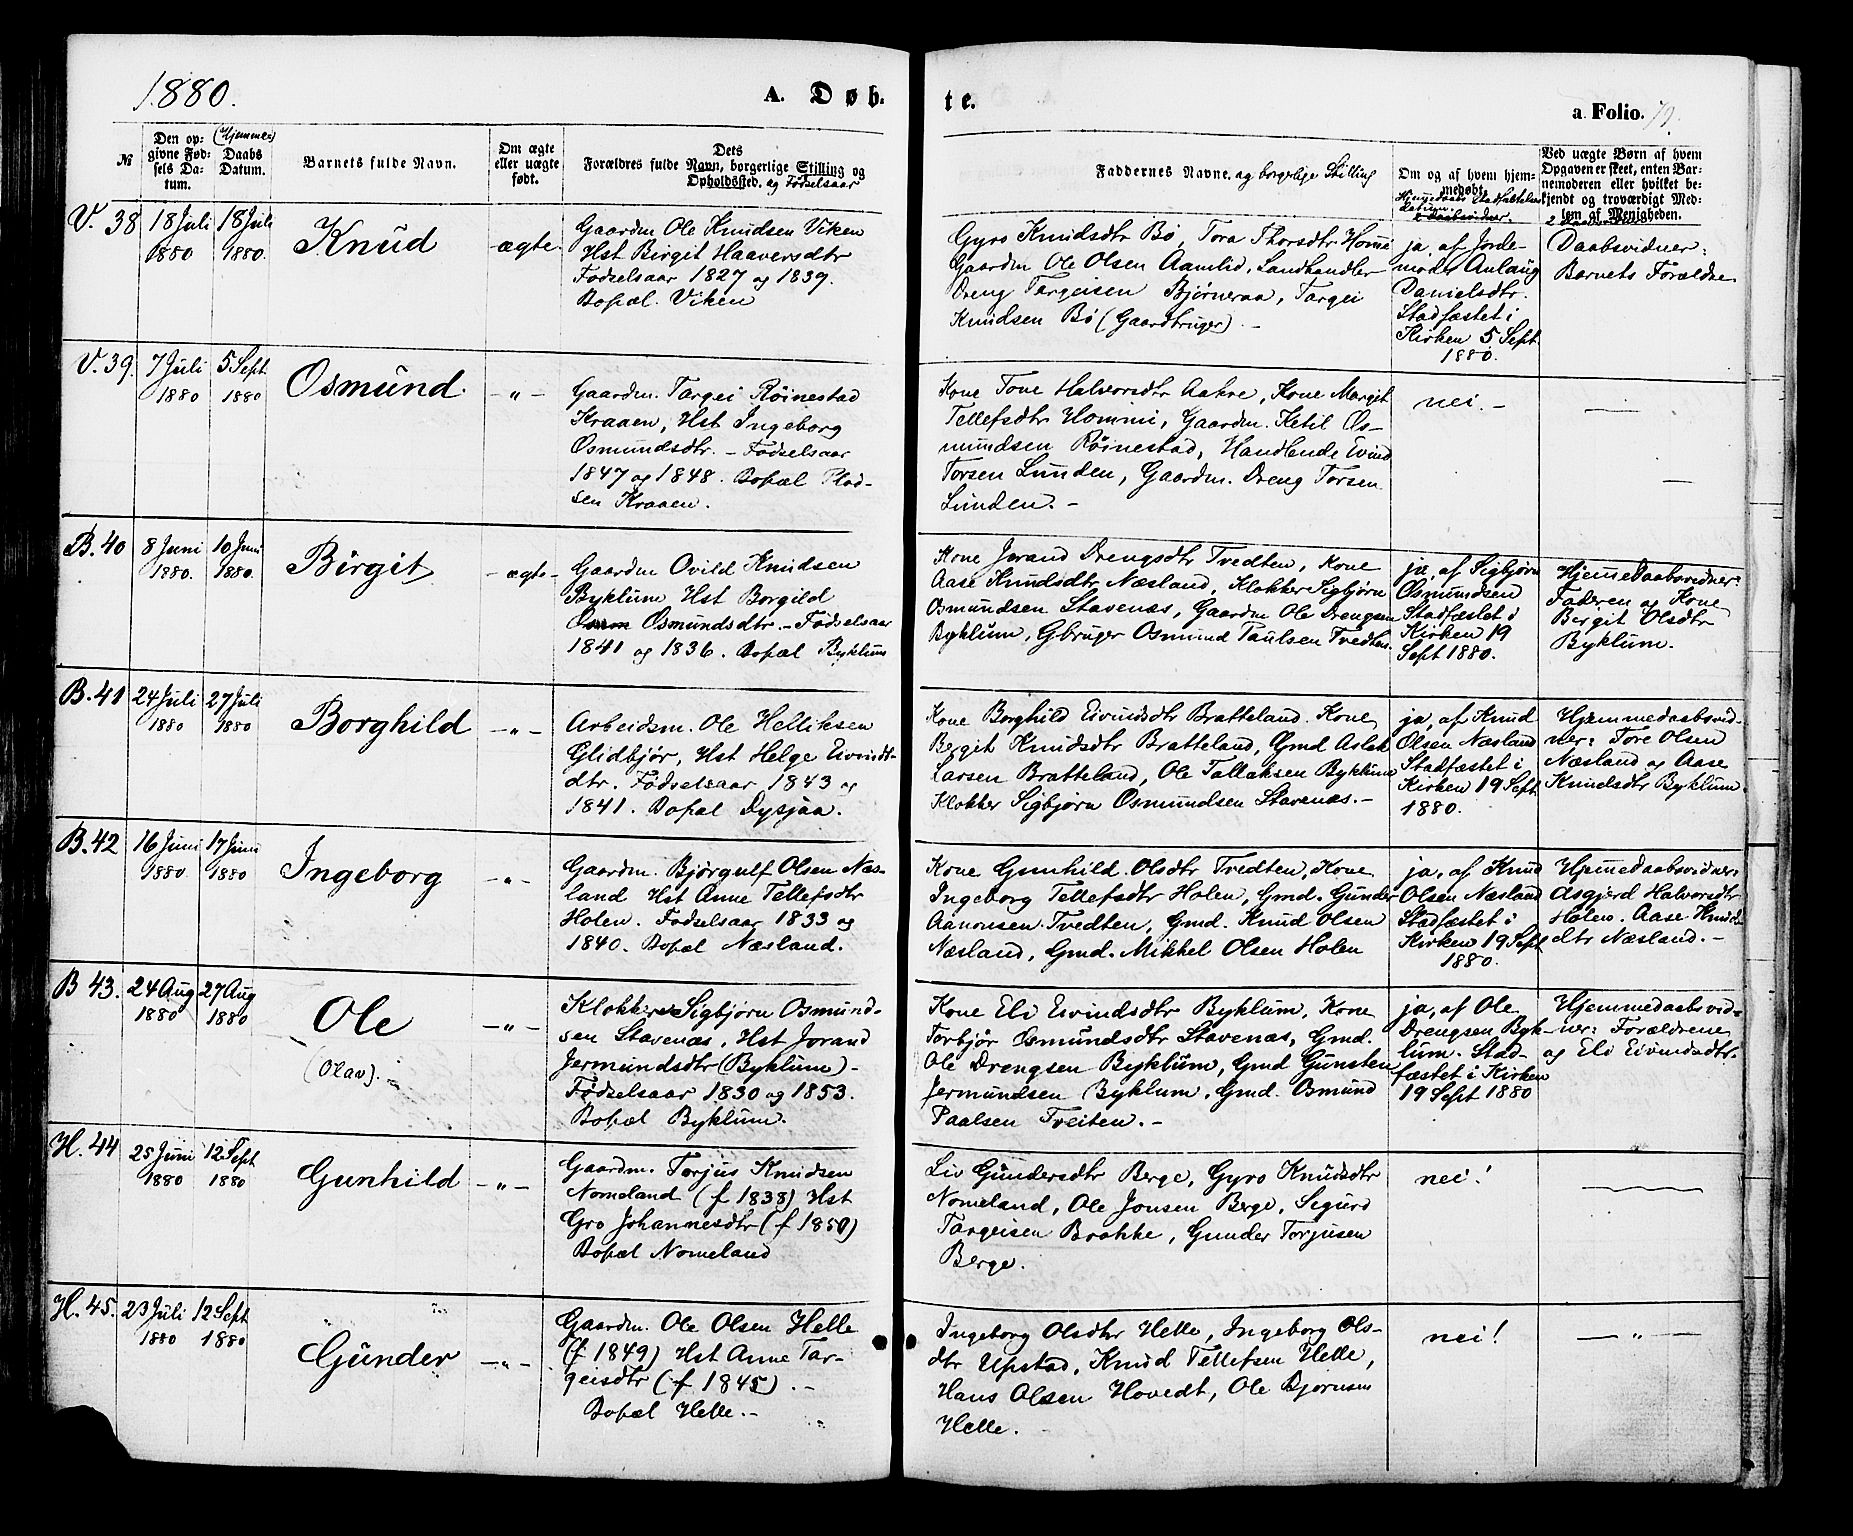 1880.
A. Døb-
te.
a. Folio. 79.
№
Den op-
givne Fød-
sels Da-
tum.
(Hjemme-)
Daabs
Datum.
Barnets fulde Navn.
Om ægte
eller uægte
født.
Dets
Forældres fulde Navn, borgerlige Stilling og
Opholdssted. og Fødselsaar
Faddernes Navne. og borgerlige Stilling
Om og af hvem hjem-
medøbt.
2 Daabsvidner.
Ved uægte Børn af hvem
Opgaven er skeet, enten Bar-
nemoderen eller hvilket be-
kjendt og troværdigt Med-
lem af Menigheden.
V. 38
18 Juli
1880
18 Juli
1880.
Knud
ægte
Gaardm Ole Knudsen Viken
Hst Birgit Haaversdtr
Fødselsaar 1827 og 1839.
Bopæl. Viken
Gyro Knudsdtr Bø, Tora Thorsdtr Homme
Gaardm Ole Olsen Aamlid, Landhandler
Dreng Targeisen Bjørneraa, Targei
Knudsen Bø (Gaardbruger). -
ja, af Jorde-
moder Anlaug
Danielsdtr.
Stadfæstet i
Kirken 5 Sept
1880.
Daabsvidner:
Barnets Forældre
V. 39.
7 Juli
1880
5 Sept.
1880
Osmund.
- " -
Gaardm. Targei Røinestad
Kraaen, Hst Ingeborg
Osmundsdtr. - Fødselsaar
1847 og 1848. Bopæl Plad-
sen Kraaen.
Kone Tone Halvorsdtr Aakre, Kone Margit
Tellefsdtr Hommi, Gaardm. Ketil Os-
mundsen Røinestad, Handlende Eivind
Torsen Lunden, Gaardm. Dreng Torsen
Lunden. -
nei. -
B. 40
8 Juni
1880.
10 Juni
1880.
Birgit
- ægte -
Gaardm Ovild Knudsen
Byklum Hst Borgild
Osmundsdtr. - Fødselsaar
1841 og 1836. Bopæl Byklum
Kone Jorand Drengsdtr Tvedten, Kone
Aase Knudsdtr Næsland, Klokker Sigbjørn
Osmundsen Stavenæs, Gaardm Ole Drengsen
Byklum, Gbruger Osmund Paulsen Tvedten.
ja, af Sigbjørn
Osmundsen
Stadfæstet i
Kirken 19
Sept 1880.
Hjemmedaabsvidner:
Faderen og Kone
Bergit Olsdtr
Byklum.
B. 41
24 Juli
1880
27 Juli
1880
Borghild
- " -
Arbeidsm. Ole Helliksen
Glidbjør, Hst Helge Eivinds-
dtr. Fødselsaar 1843 og
1841. Bopæl Dysjaa.
Kone Borghild Eivindsdtr Bratteland. Kone
Bergit Knudsdtr Bratteland, Gmd Aslak
Larsen Bratteland, Ole Tallaksen Byklum
Klokker Sigbjørn Osmundsen Stavenæs. -
ja, af Knud
Olsen Næsland
Stadfæstet i
Kirken 19 Sept
1880.
Hjemmedaabsvid-
ner: Tore Olsen
Næsland og Aase
Knudsdtr Byklum
B. 42
16 Juni
1880.
17 Juni
1880
Ingeborg
- " -
Gaardm. Bjørgulf Olsen Næs-
land Hst Anne Tellefsdtr
Holen. Fødselsaar 1833 og
1840. Bopæl Næsland.
Kone Gunhild Olsdtr Tvedten, Kone
Ingeborg Tellefsdtr Holen, Gmd. Gunder
Aanonsen Tvedten, Gmd. Knud Olsen
Næsland, Gmd. Mikkel Olsen Holen
ja, af Knud
Olsen Næsland
Stadfæstet i
Kirken 19 Sept
1880.
Hjemmedaabsvidner:
Asgjerd Halvorsdtr
Holen. Aase Knuds-
dtr Næsland. -
B 43.
24 Aug
1880
27 Aug
1880
Ole
(Olav). -
- " -
Klokker Sigbjørn Osmund-
sen Stavenæs, Hst Jorand
Jermundsdtr (Byklum) -
Fødselsaar 1830 og 1853.
Bopæl Byklum.
Kone Eli Eivindsdtr Byklum, Kone
Torbjør Osmundsdtr Stavenæs, Gmd.
Ole Drengsen Byklum, Gmd Gunsten
Jermundsen Byklum, Gmd. Osmund
Paalsen Tveiten. -
ja, af Ole
Drengsen Byk-
lum. Stad-
fæstet i Kirken
19 Sept 1880
Hjemmedaabsvid-
ner: Forældrene
og Eli Eivindsdtr.
H. 44
25 Juni
1880
12 Sept
1880
Gunhild
- " -
Gaardm. Torjus Knudsen
Nomeland (f 1838) Hst
Gro Johannesdtr (f 1850)
Bopæl Nomeland
Liv Gundersdtr Berge, Gyro Knudsdtr
Nomeland, Ole Jonsen Berge, Sigurd
Targeisen Brokke, Gunder Torjusen
Berge.
nei!
H. 45.
23 Juli
1880
12 Sept
1880
Gunder
- " -
Gaardm. Ole Olsen Helle
(f 1849) Hst Anne Tar-
geisdtr (f 1845). -
Bopæl Helle. -
Ingeborg Olsdtr Helle, Ingeborg Ols-
dtr Upstad, Knud Tellefsen Helle,
Hans Olsen Hovedt, Ole Bjørnsen
Helle.
nei!
- " -